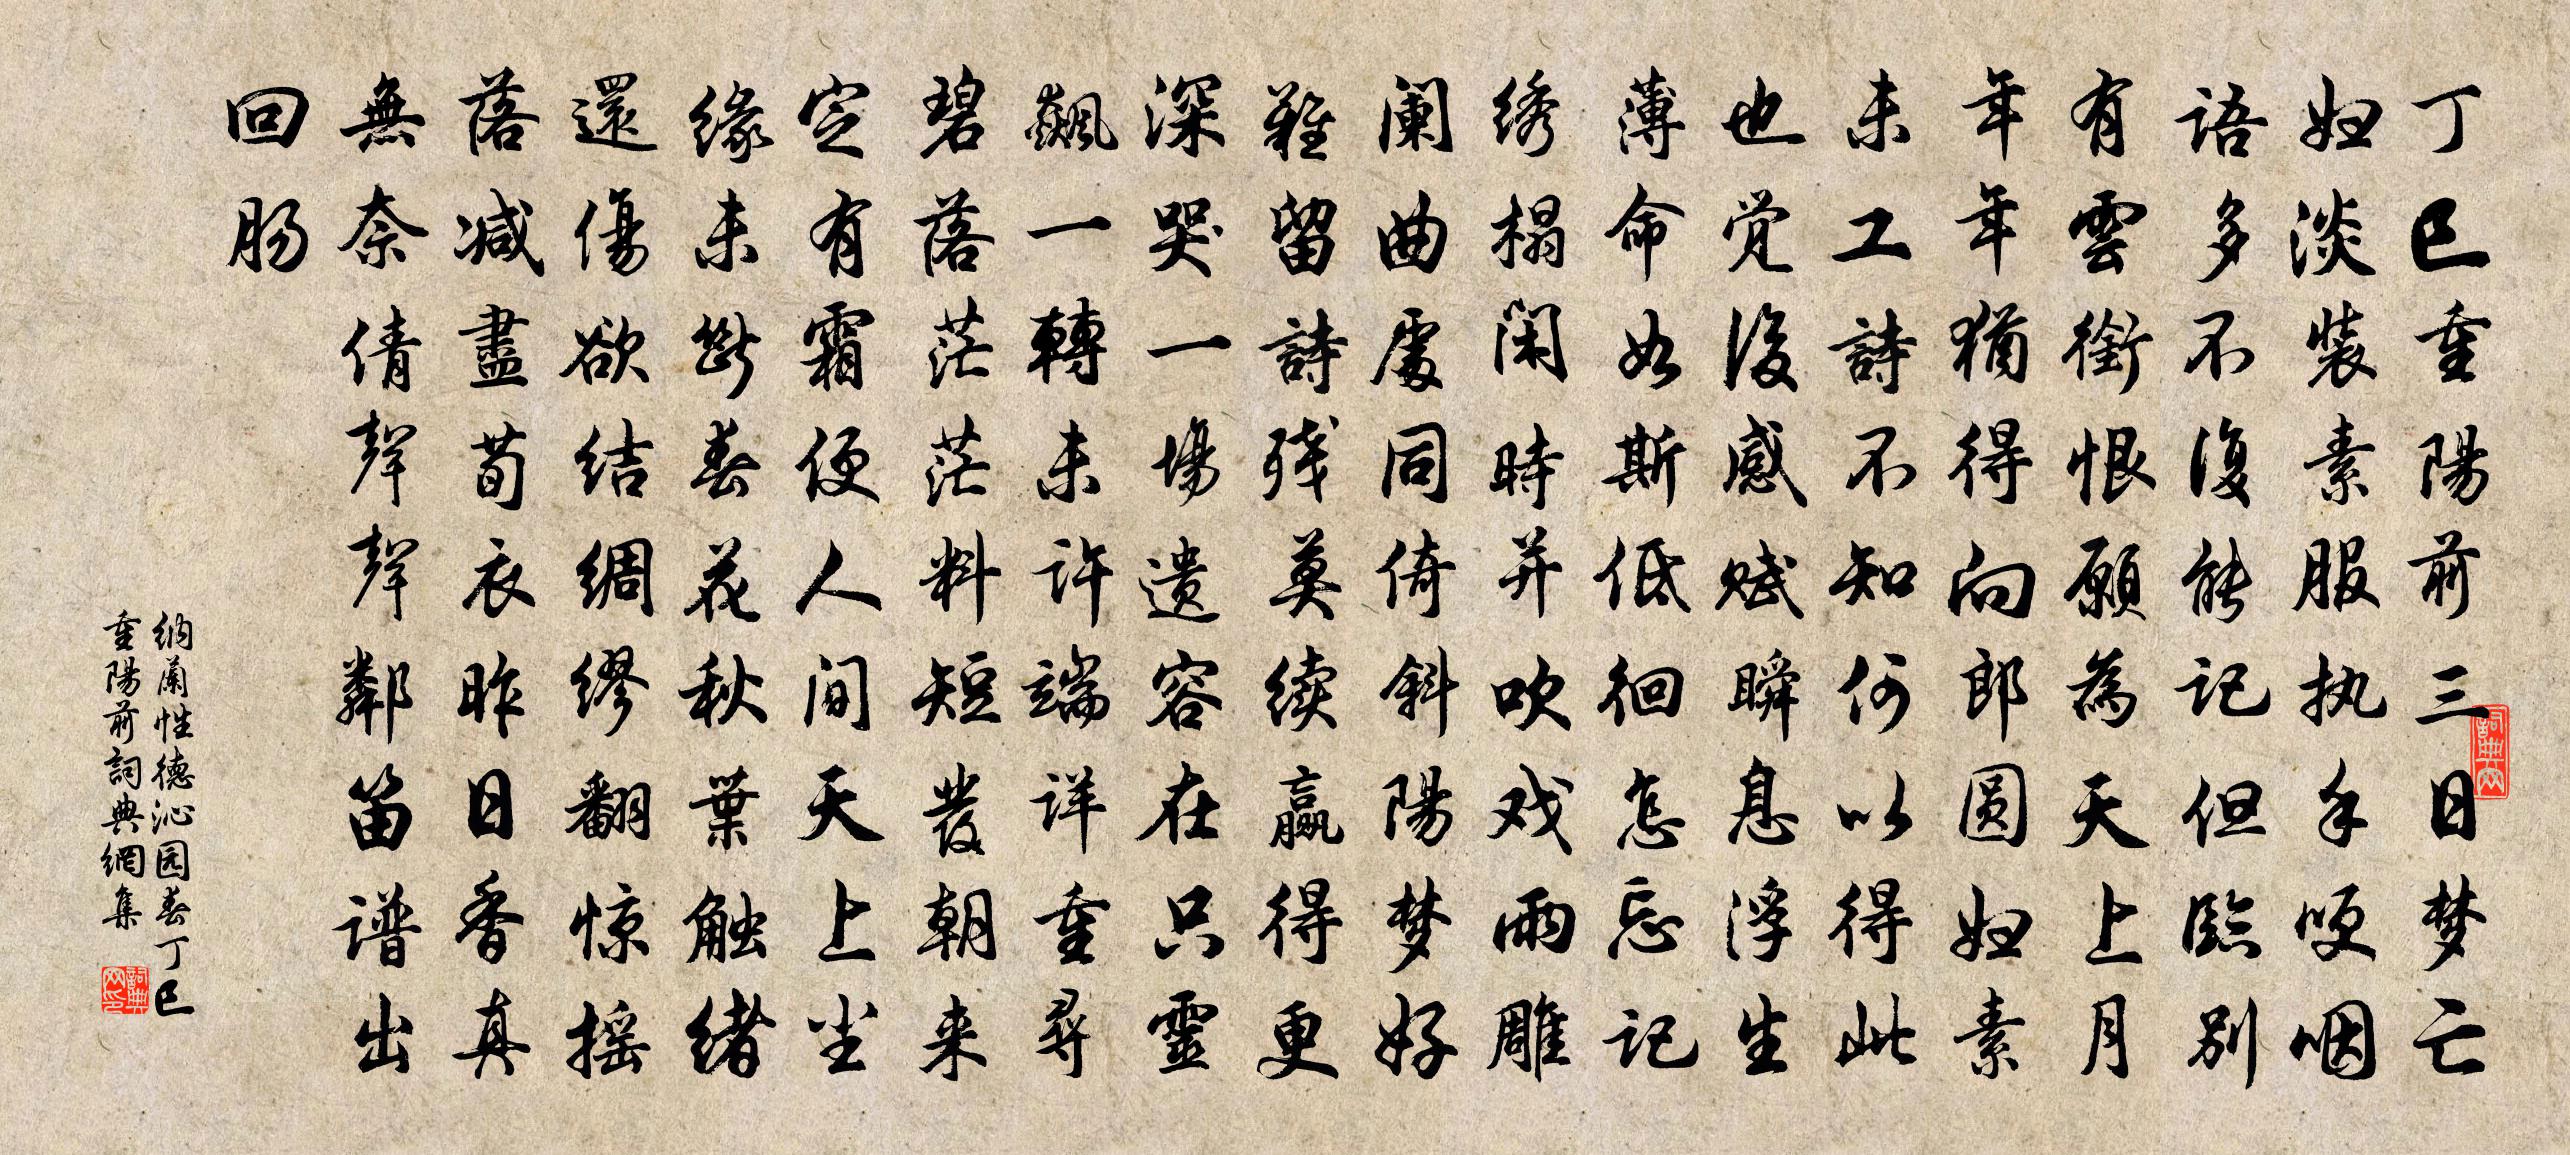 丁巳重陽前三日梦亡
妇淡装素服执手哽咽
語多不復能记但臨别
有雲銜恨願為天上月
年年猶得向郎圆妇素
未工詩不知何以得此
也觉後感赋瞬息浮生
薄命如斯低徊怎忘记
绣榻闲時并吹戏雨雕
阑曲處同倚斜陽梦好
難留詩残莫续赢得更
深哭一場遗容在只靈
飙一轉未许端详重尋
碧落茫茫料短發朝来
定有霜便人间天上尘
缘未斷春花秋葉触绪
還傷欲结绸缪翻惊摇
落减盡荀衣昨日香真
無奈倩聲聲鄰笛谱出
回肠
纳蘭性德沁园春丁巳
重陽前詞典網集
詞典网
詞典网印